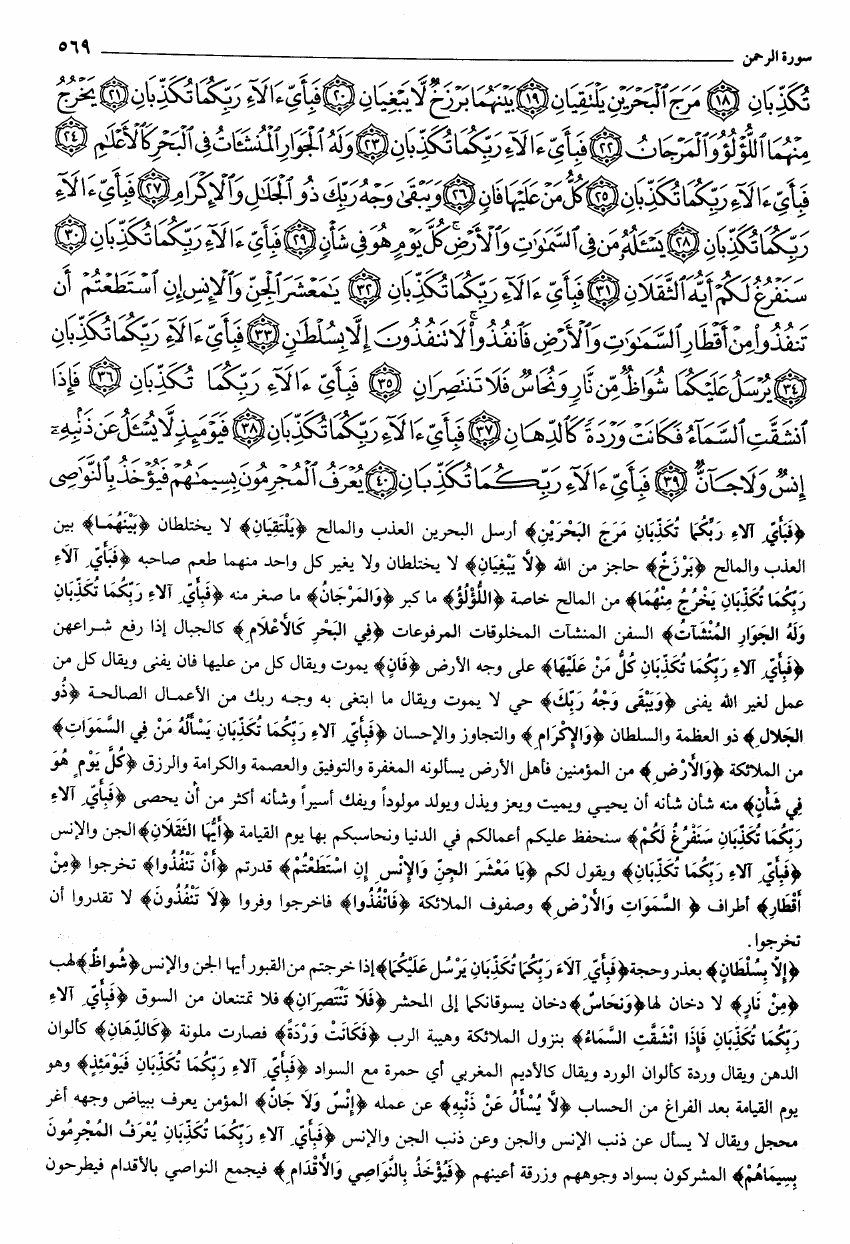 سورة الرحمن ٥٦٩
تُكَذِّبَانِ ﴿١٨﴾ مَرَجَ ٱلْبَحْرَيْنِ يَلْتَقِيَانِ ﴿١٩﴾ بَيْنَهُمَا بَرْزَخٌ لَّا يَبْغِيَانِ ﴿٢٠﴾ فَبِأَيِّ ءَالَآءِ رَبِّكُمَا تُكَذِّبَانِ ﴿٢١﴾ يَخْرُجُ
مِنْهُمَا ٱللُّؤْلُؤُ وَٱلْمَرْجَانُ ﴿٢٢﴾ فَبِأَيِّ ءَالَآءِ رَبِّكُمَا تُكَذِّبَانِ ﴿٢٣﴾ وَلَهُ ٱلْجَوَارِ ٱلْمُنشَـَٔاتُ فِى ٱلْبَحْرِ كَٱلْأَعْلَٰمِ ﴿٢٤﴾
فَبِأَيِّ ءَالَآءِ رَبِّكُمَا تُكَذِّبَانِ ﴿٢٥﴾ كُلُّ مَنْ عَلَيْهَا فَانٍ ﴿٢٦﴾ وَيَبْقَىٰ وَجْهُ رَبِّكَ ذُو ٱلْجَلَٰلِ وَٱلْإِكْرَامِ ﴿٢٧﴾ فَبِأَيِّ ءَالَآءِ
رَبِّكُمَا تُكَذِّبَانِ ﴿٢٨﴾ يَسْـَٔلُهُۥ مَن فِى ٱلسَّمَٰوَٰتِ وَٱلْأَرْضِ ۚ كُلَّ يَوْمٍ هُوَ فِى شَأْنٍ ﴿٢٩﴾ فَبِأَيِّ ءَالَآءِ رَبِّكُمَا تُكَذِّبَانِ ﴿٣٠﴾
سَنَفْرُغُ لَكُمْ أَيُّهَ ٱلثَّقَلَانِ ﴿٣١﴾ فَبِأَيِّ ءَالَآءِ رَبِّكُمَا تُكَذِّبَانِ ﴿٣٢﴾ يَٰمَعْشَرَ ٱلْجِنِّ وَٱلْإِنسِ إِنِ ٱسْتَطَعْتُمْ أَن
تَنفُذُوا۟ مِنْ أَقْطَارِ ٱلسَّمَٰوَٰتِ وَٱلْأَرْضِ فَٱنفُذُوا۟ ۚ لَا تَنفُذُونَ إِلَّا بِسُلْطَٰنٍ ﴿٣٣﴾ فَبِأَيِّ ءَالَآءِ رَبِّكُمَا تُكَذِّبَانِ
﴿٣٤﴾ يُرْسَلُ عَلَيْكُمَا شُوَاظٌ مِّن نَّارٍ وَنُحَاسٌ فَلَا تَنتَصِرَانِ ﴿٣٥﴾ فَبِأَيِّ ءَالَآءِ رَبِّكُمَا تُكَذِّبَانِ ﴿٣٦﴾ فَإِذَا
ٱنشَقَّتِ ٱلسَّمَآءُ فَكَانَتْ وَرْدَةً كَٱلدِّهَانِ ﴿٣٧﴾ فَبِأَيِّ ءَالَآءِ رَبِّكُمَا تُكَذِّبَانِ ﴿٣٨﴾ فَيَوْمَئِذٍ لَّا يُسْـَٔلُ عَن ذَنۢبِهِۦٓ
إِنسٌ وَلَا جَآنٌّ ﴿٣٩﴾ فَبِأَيِّ ءَالَآءِ رَبِّكُمَا تُكَذِّبَانِ ﴿٤٠﴾ يُعْرَفُ ٱلْمُجْرِمُونَ بِسِيمَٰهُمْ فَيُؤْخَذُ بِٱلنَّوَٰصِى
﴿فَبِأَيِّ آلاَءِ رَبِّكُمَا تُكَذِّبَانِ مَرَجَ البَحْرَيْنِ﴾ أرسل البحرين العذب والمالح ﴿يَلْتَقِيَانِ﴾ لا يختلطان ﴿بَيْنَهُمَا﴾ بين
العذب والمالح ﴿بَرْزَخٌ﴾ حاجز من الله ﴿لَّا يَبْغِيَانِ﴾ لا يختلطان ولا يغير كل واحد منهما طعم صاحبه ﴿فَبِأَيِّ آلاَءِ
رَبِّكُمَا تُكَذِّبَانِ يَخْرُجُ مِنْهُمَا﴾ من المالح خاصة ﴿اللُّؤْلُؤُ﴾ ما كبر ﴿وَالمَرْجَانُ﴾ ما صغر منه ﴿فَبِأَيِّ آلاَءِ رَبِّكُمَا تُكَذِّبَانِ
وَلَهُ الجَوَارِ المُنْشَآتُ﴾ السفن المنشآت المخلوقات المرفوعات ﴿فِي البَحْرِ كَالأَعْلاَمِ﴾ كالجبال إذا رفع شراعهن
﴿فَبِأَيِّ آلاَءِ رَبِّكُمَا تُكَذِّبَانِ كُلُّ مَنْ عَلَيْهَا﴾ على وجه الأرض ﴿فَانٍ﴾ يموت ويقال كل من عليها فان يفنى ويقال كل من
عمل لغير الله يفنى ﴿وَيَبْقَى وَجْهُ رَبِّكَ﴾ حي لا يموت ويقال ما ابتغى به وجه ربك من الأعمال الصالحة ﴿ذُو
الجَلالِ﴾ ذو العظمة والسلطان ﴿وَالإِكْرَامِ﴾ والتجاوز والإحسان ﴿فَبِأَيِّ آلاَءِ رَبِّكُمَا تُكَذِّبَانِ يَسْأَلُهُ مَنْ فِي السَّمَوَاتِ﴾
من الملائكة ﴿وَالأَرْضِ﴾ من المؤمنين فأهل الأرض يسألونه المغفرة والتوفيق والعصمة والكرامة والرزق ﴿كُلَّ يَوْمٍ هُوَ
فِي شَأْنٍ﴾ منه شأن شأنه أن يحيي ويميت ويعز ويذل ويولد مولوداً ويفك أسيراً وشأنه أكثر من أن يحصى ﴿فَبِأَيِّ آلاَءِ
رَبِّكُمَا تُكَذِّبَانِ سَنَفْرُغُ لَكُمْ﴾ سنحفظ عليكم أعمالكم في الدنيا ونحاسبكم بها يوم القيامة ﴿أَيُّهَا الثَّقَلاَنِ﴾ الجن والإنس
﴿فَبِأَيِّ آلاَءِ رَبِّكُمَا تُكَذِّبَانِ﴾ ويقول لكم ﴿يَا مَعْشَرَ الجِنِّ وَالإِنْسِ إِنِ اسْتَطَعْتُمْ﴾ قدرتم ﴿أَنْ تَنْفُذُوا﴾ تخرجوا ﴿مِنْ
أَقْطَارِ﴾ أطراف ﴿السَّمَوَاتِ وَالأَرْضِ﴾ وصفوف الملائكة ﴿فَانْفُذُوا﴾ فاخرجوا وفروا ﴿لاَ تَنْفُذُونَ﴾ لا تقدروا أن
تخرجوا.
﴿إِلاَّ بِسُلْطَانٍ﴾ بعذر وحجة ﴿فَبِأَيِّ آلاَءِ رَبِّكُمَا تُكَذِّبَانِ يُرْسَلُ عَلَيْكُمَا﴾ إذا خرجتم من القبور أيها الجن والإنس ﴿شُواظٌ﴾ لهب
﴿مِنْ نَارٍ﴾ لا دخان لها ﴿وَنُحَاسٌ﴾ دخان يسوقانكما إلى المحشر ﴿فَلاَ تَنْتَصِرَانِ﴾ فلا تمتنعان من السوق ﴿فَبِأَيِّ آلاَءِ
رَبِّكُمَا تُكَذِّبَانِ فَإِذَا انْشَقَّتِ السَّمَاءُ﴾ بنزول الملائكة وهيبة الرب ﴿فَكَانَتْ وَرْدَةً﴾ فصارت ملونة ﴿كَالدِّهَانِ﴾ كألوان
الدهن ويقال وردة كألوان الورد ويقال كالأديم المغربي أي حمرة مع السواد ﴿فَبِأَيِّ آلاَءِ رَبِّكُمَا تُكَذِّبَانِ فَيَوْمَئِذٍ﴾ وهو
يوم القيامة بعد الفراغ من الحساب ﴿لاَّ يُسْأَلُ عَنْ ذَنْبِهِ﴾ عن عمله ﴿إِنْسٌ وَلاَ جَانٌّ﴾ المؤمن يعرف ببياض وجهه أغر
محجل ويقال لا يسأل عن ذنب الإنس والجن وعن ذنب الجن والإنس ﴿فَبِأَيِّ آلاَءِ رَبِّكُمَا تُكَذِّبَانِ يُعْرَفُ المُجْرِمُونَ
بِسِيمَاهُمْ﴾ المشركون بسواد وجوههم وزرقة أعينهم ﴿فَيُؤْخَذُ بِالنَّوَاصِي وَالأَقْدَامِ﴾ فيجمع النواصي بالأقدام فيطرحون